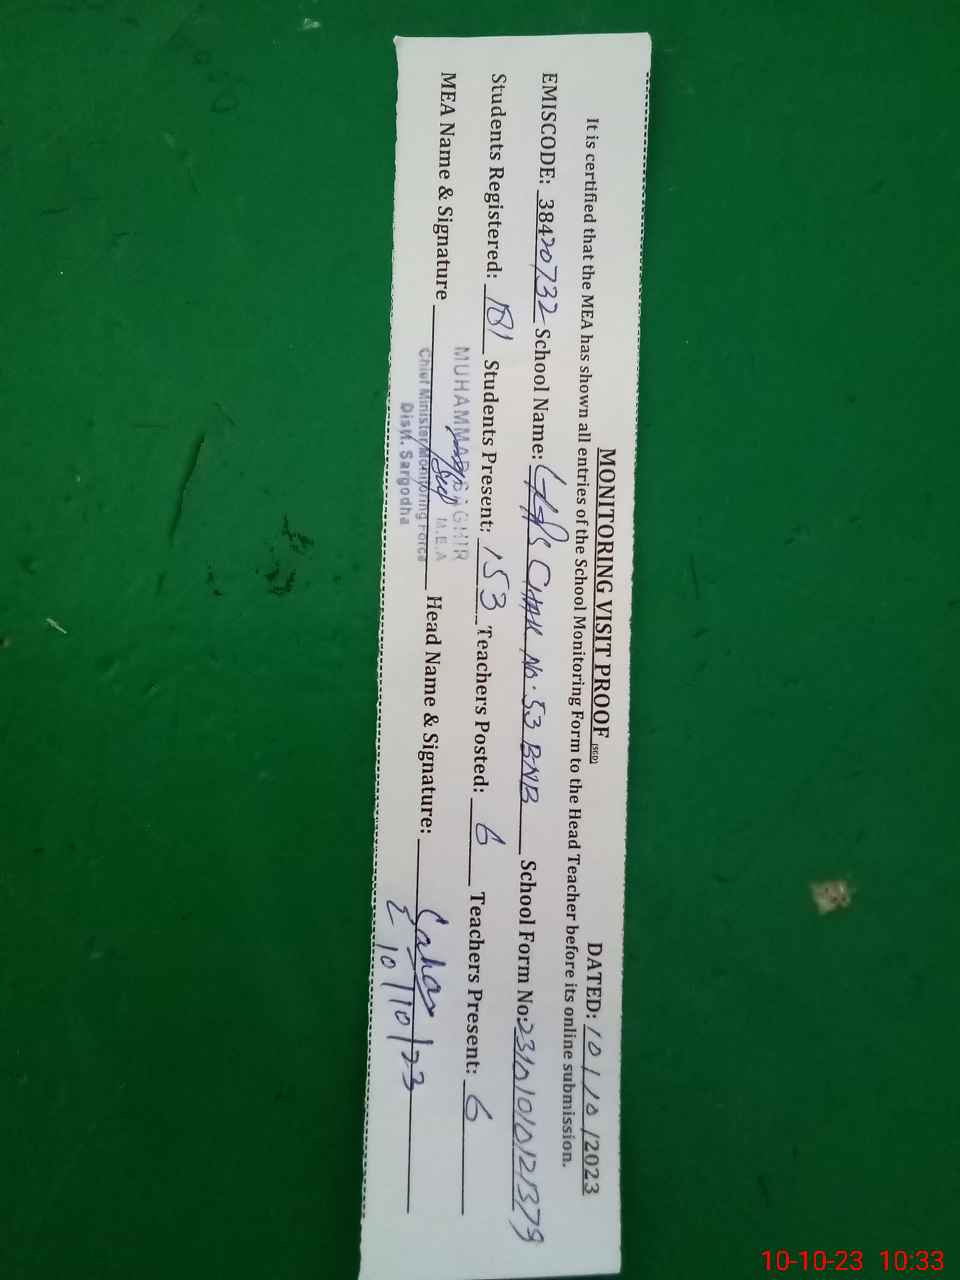 MONITORING VISIT PROOF (SGD) DATED: 10/10/2023
It is certified that the MEA has shown all entries of the School Monitoring Form to the Head Teacher before its online submission.
EMISCODE: 38420732 School Name: CHAK No: 53 BNB School Form No:
Students Registered: 181 Students Present: 153 Teachers Posted: 6 Teachers Present: 6
MEA Name & Signature Head Name & Signature:
MUHAMMAD
M.E.A
Chief Minister Monitoring Force
Distt. Sargodha
10/10/23
10-10-23 10:33